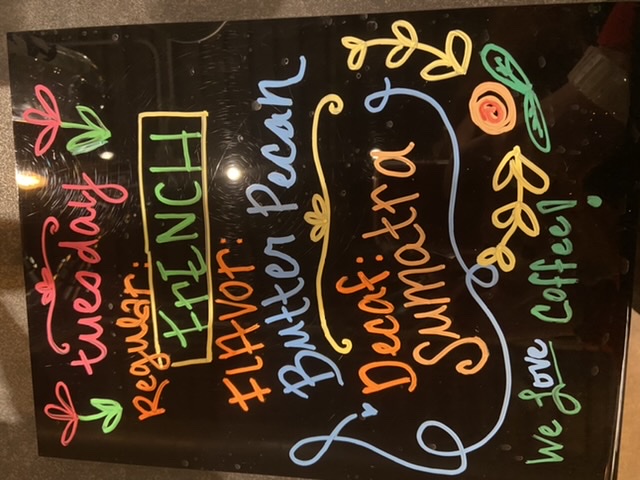 tuesday
Regular:
FrENCH
FLAVOr:
Butter Pecan
Decaf:
Sumatra
We Love Coffee!